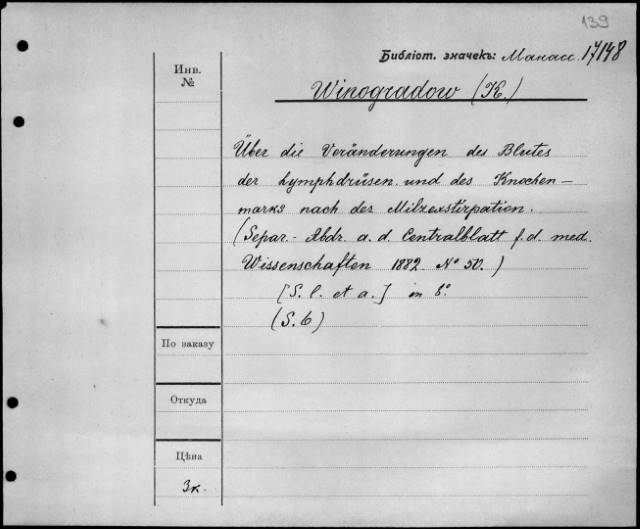 139
Библіот. значекъ: Манасс. 17148
Инв.
№
Winogradow (K.)
Über die Veränderungen des Blutes
der Lymphdrüsen und des Knochen-
marks nach der Milzexstirpatien.
(Separ.- Abdr. a. d. Centralblatt f. d. med.
Wissenschaften 1882. № 50.)
[S. l. et a.] in 8°
(S. 6)
По заказу
Откуда
Цѣна
3к.